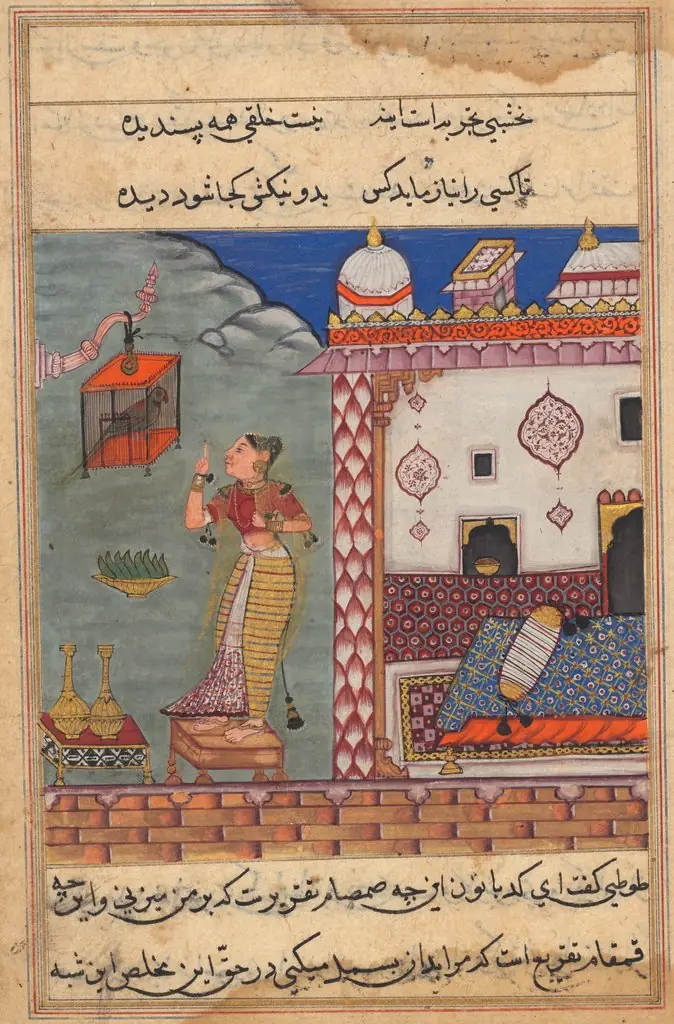 نخشبي تجربه است اینـ نیست خلقي همه پسندیده
تاکسي را نیازماید کس بد و نیکش کجا شود دیده
طوطي کفت اي کدبانون این چه صمصام تقریرست که بر من میزني و این چه
قمقام تقریع است که مرا بدان بسمل میکني در حقّ این مخلص این شبه